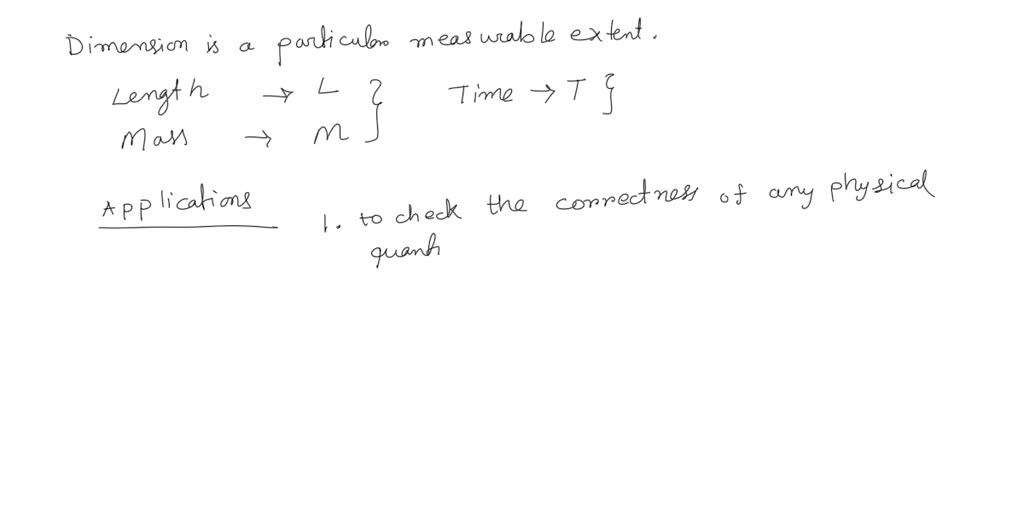 Dimension is a particular measurable extent.
Length → L } Time → T }
Mass → M
Applications 1. to check the correctness of any physical
quanti